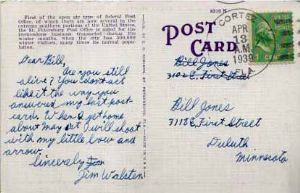 First of the open air type of Federal Post
Office of which there are now several in the
extreme southern portions of the United States.
St. Petersburg Post Office is noted for the
tremendous business transacted during the
winter season. The city has over
winter visitors, many times its normal population.
POST
CARD
CORTEZ
APR
13
A.M.
1939
FLA
Dear Bill,
Are you still
alive? You don't act
like it the way you
answered my first post
cards. When I get home
about May 1st I will shoot
with my little bow and
arrow.
Sincerely Jim
Jim Walsten
Bill Jones
3102 E. First Street
Bill Jones
3118 E. First Street
Duluth
Minnesota